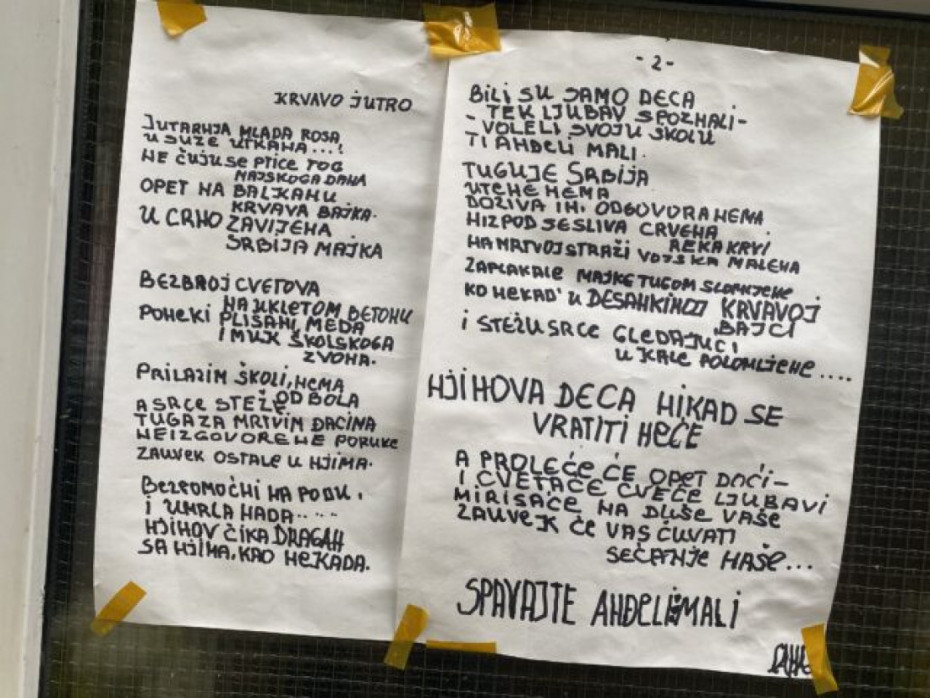 KRVAVO JUTRO
JUTARNJA MLADA ROSA
U SUZE UTKANA...!
NE ČUJU SE PTICE TOG
MAJSKOGA DANA
OPET NA BALKANU
KRVAVA BAJKA.
U CRNO ZAVIJENA
SRBIJA MAJKA
BEZBROJ CVETOVA
NA UKLETOM BETONU
PONEKI PLIŠANI MEDA
I MUK ŠKOLSKOGA
ZVONA.
PRILAZIM ŠKOLI, NEMA
OD BOLA
A SRCE STEŽE
TUGA ZA MRTVIM ĐACINA
NEIZGOVORENE PORUKE
ZAUVEK OSTALE U NJIMA.
BEZPOMOĆNI NA PODU,
I UMRLA NADA....
NJIHOV ČIKA DRAGAN
SA NJIMA, KAO NEKADA.
- 2 -
BILI SU SAMO DECA
- TEK LJUBAV SPOZNALI -
- VOLELI SVOJU ŠKOLU
TI ANĐELI MALI.
TUGUJE SRBIJA
UTEHE NEMA
DOZIVA IH. ODGOVORA NEMA
NIZ PODJE SLIVA CRVENA
REKA KRVI
NA MRTVOJ STRAŽI VOJSKA MALENA
ZAPLAKALE MAJKE TUGOM SLOMLJENE
KO NEKAD' U DESANKINOJ KRVAVOJ
BAJCI
I STEŽU SRCE GLEDAJUCI
U KALE POLOMLJENE....
NJIHOVA DECA NIKAD SE
VRATITI NEĆE
A PROLEĆE ĆE OPET DOĆI -
I CVETAĆE CVEĆE LJUBAVI
MIRISAĆE NA DUŠE VAŠE
ZAUVEK ĆE VAS ČUVATI
SEĆANJE NAŠE...
SPAVAJTE ANĐELI MALI